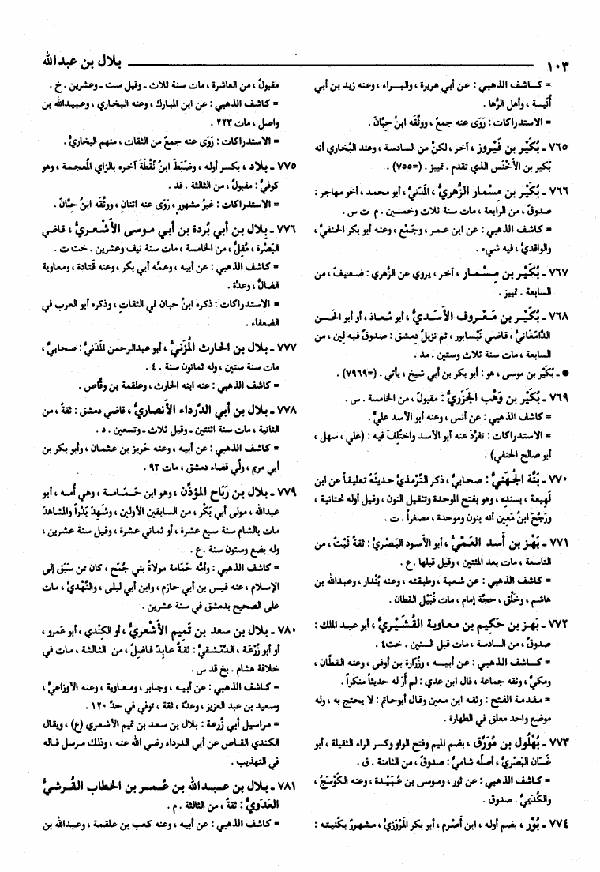 ١٠٣
بلال بن عبدالله
= كاشف الذهبي : عن أبي هريرة ، والبراء ، وعنه زيد بن أبي
أنيسة ، وأهل الرُّها .
= الاستدراكات : رَوَى عنه جمعٌ ، ووثَّقه ابنُ حِبَّان .
٧٦٥ ـ بُكَيْر بن فَيْروز ، آخر ، لكنْ من السادسة ، وعند البخاري أنه
بُكَير بن الأخنس الذي تقدم . تمييز . (= ٧٥٥) .
٧٦٦ ـ بُكَيْر بن مِسْمار الزُّهريُّ ، المَدَنيُّ ، أبو محمد ، أخو مهاجر :
صدوقٌ ، من الرابعة ، مات سنة ثلاث وخمسين . م ت س .
= كاشف الذهبي : عن ابن عمر ، وجَمْع ، وعنه أبو بكر الحنفيُّ ،
والواقديُّ ، فيه شيء .
٧٦٧ ـ بُكَيْر بن مِسْمار ، آخر ، يروي عن الزهري : ضعيفٌ ، من
السابعة . تمييز .
٧٦٨ ـ بُكَيْر بن مَعْروف الأسَديُّ ، أبو معاذ ، أو أبو الحسن
الدَّامَغانيُّ ، قاضي نَيْسابور ، ثم نزيلُ دمشق : صدوقٌ فيه لين ، من
السابعة ، مات سنة ثلاث وستين . مد .
● ـ بُكَيْر بن موسى ، هو : أبو بكر بن أبي شيخ ، يأتي . (= ٧٩٦٩) .
٧٦٩ ـ بُكَيْر بن وَهْب الجَزَريُّ : مقبولٌ ، من الخامسة . س .
= كاشف الذهبي : عن أنس ، وعنه أبو الأسد عليٌّ .
= الاستدراكات : تفرَّد عنه أبو الأسد واختُلِف فيه : (علي ، سهل ،
أبو صالح الحنفي) .
٧٧٠ ـ بَنَّة الجُهَنيُّ : صحابيٌّ ، ذكر التِّرمذيُّ حديثَه تعليقاً عن ابن
لَهيعة ، بسنده ، وهو بفتح الموحدة وتثقيل النون ، وقيل أوله تحتانية ،
ورَجَّحَ ابنُ مَعين أنه بنون وموحدة ، مصغراً . ت .
٧٧١ ـ بَهْز بن أسد العَمِّيُّ ، أبو الأسود البَصْريُّ : ثقةٌ ثَبْتٌ ، من
التاسعة ، مات بعد المئتين ، وقيل قبلها . ع .
= كاشف الذهبي : عن شعبة ، وطبقته ، وعنه بُنْدار ، وعبدالله بن
هاشم ، وخَلْق ، حجَّة إمام ، مات قُبيل القطان .
٧٧٢ ـ بَهْز بن حكيم بن معاوية القُشَيْريُّ ، أبو عبد الملك :
صدوقٌ ، من السادسة ، مات قبل الستين . خت ٤ .
= كاشف الذهبي : عن أبيه ، وزُرَارة بن أوفى ، وعنه القطَّان ،
ومكيٌّ ، وثقه جماعة ، قال ابن عدي : لم أَرَ له حديثاً منكراً .
= مقدمة الفتح : وثقه ابن معين وقال أبو حاتم : لا يحتج به ، وله
موضع واحد معلق في الطهارة .
٧٧٣ ـ بُهْلُول بن مُوَرِّق ، بضم الميم وفتح الواو وكسر الراء الثقيلة ، أبو
غَسَّان البَصْريُّ ، أصلُه شاميٌّ : صدوقٌ ، من الثامنة . ق .
= كاشف الذهبي : عن ثور ، وموسى بن عُبيدة ، وعنه الكَوْسج ،
والكُدَيْميُّ . صدوق .
٧٧٤ ـ بُور ، بضم أوله ، ابن أصْرم ، أبو بكر المَرْوَزيُّ ، مشهورٌ بكنيته :
مقبولٌ ، من العاشرة ، مات سنة ثلاث ـ وقيل ست ـ وعشرين . خ .
= كاشف الذهبي : عن ابن المبارك ، وعنه البخاري ، وعبيدالله بن
واصل ، مات ٢٢٣ .
= الاستدراكات : رَوَى عنه جمعٌ من الثقات ، منهم البخاريُّ .
٧٧٥ ـ بِلاد ، بكسر أوله ، وضبَطَ ابنُ نُقْطَة آخره بالزاي المعجمة ، وهو
كوفيٌّ : مقبولٌ ، من الثالثة . قد .
= الاستدراكات : غيرُ مشهورٍ ، رَوَى عنه اثنان ، ووثَّقه ابنُ حِبَّان .
٧٧٦ ـ بلال بن أبي بُردة بن أبي موسى الأشْعريُّ ، قاضي
البَصْرة ، مُقِلٌّ ، من الخامسة ، مات سنة نيف وعشرين . خت ت .
= كاشف الذهبي : عن أبيه ، وعمِّه أبي بكر ، وعنه قتادة ، ومعاوية
الضالُّ ، وعدَّة .
= الاستدراكات : ذكره ابنُ حبان في الثقات ، وذكره أبو العرب في
الضعفاء .
٧٧٧ ـ بلال بن الحارث المُزَنيُّ ، أبو عبدالرحمن المَدَنيُّ : صحابيٌّ ،
مات سنة ستين ، وله ثمانون سنة . ٤ .
= كاشف الذهبي : عنه ابنه الحارث ، وعلقمة بن وقَّاص .
٧٧٨ ـ بلال بن أبي الدرداء الأنصاريُّ ، قاضي دمشق : ثقةٌ ، من
الثانية ، مات سنة اثنتين ـ وقيل ثلاث ـ وتسعين . د .
= كاشف الذهبي : عن أبيه ، وعنه حَريز بن عثمان ، وأبو بكر بن
أبي مريم ، وليَ قضاء دمشق ، مات ٩٣ .
٧٧٩ ـ بلال بن رَبَاح المؤذِّن ، وهو ابن حَمَامة ، وهي أمه ، أبو
عبدالله ، مولى أبي بكر ، من السابقين الأولين ، وشَهِدَ بَدْراً والمشاهدَ
مات بالشام سنة سبع عشرة ، أو ثماني عشرة ، وقيل سنة عشرين ،
وله بضع وستون سنة . ع .
= كاشف الذهبي : وأمُّه حَمَامة مولاةُ بني جُمَح ، كان من سَبَق إلى
الإسلام ، عنه قيس بن أبي حازم ، وابن أبي ليلى ، والنَّهْديُّ ، مات
على الصحيح بدمشق في سنة عشرين .
٧٨٠ ـ بلال بن سعد بن تميم الأشعريُّ ، أو الكندي ، أبو عَمرو ،
أو أبو زُرْعَة ، الدمشقيُّ : ثقةٌ عابدٌ فاضلٌ ، من الثالثة ، مات في
خلافة هشام . بخ قد س .
= كاشف الذهبي : عن أبيه ، وجابر ، ومعاوية ، وعنه الأوزاعيُّ ،
وسعيد بن عبد العزيز ، وعدَّة ، ثقة ، توفي في حدِّ ١٢٠ .
= مراسيل أبي زُرعة : بلال بن سعد بن تميم الأشعري (ع) ، ويقال
الكندي القاص عن أبي الدرداء رضي الله عنه ، وذلك مرسل قاله
في التهذيب .
٧٨١ ـ بلال بن عبدالله بن عُمر بن الخطاب القُرشيُّ
العَدَويُّ : ثقةٌ ، من الثالثة . م .
= كاشف الذهبي : عن أبيه ، وعنه كعب بن علقمة ، وعبدالله بن